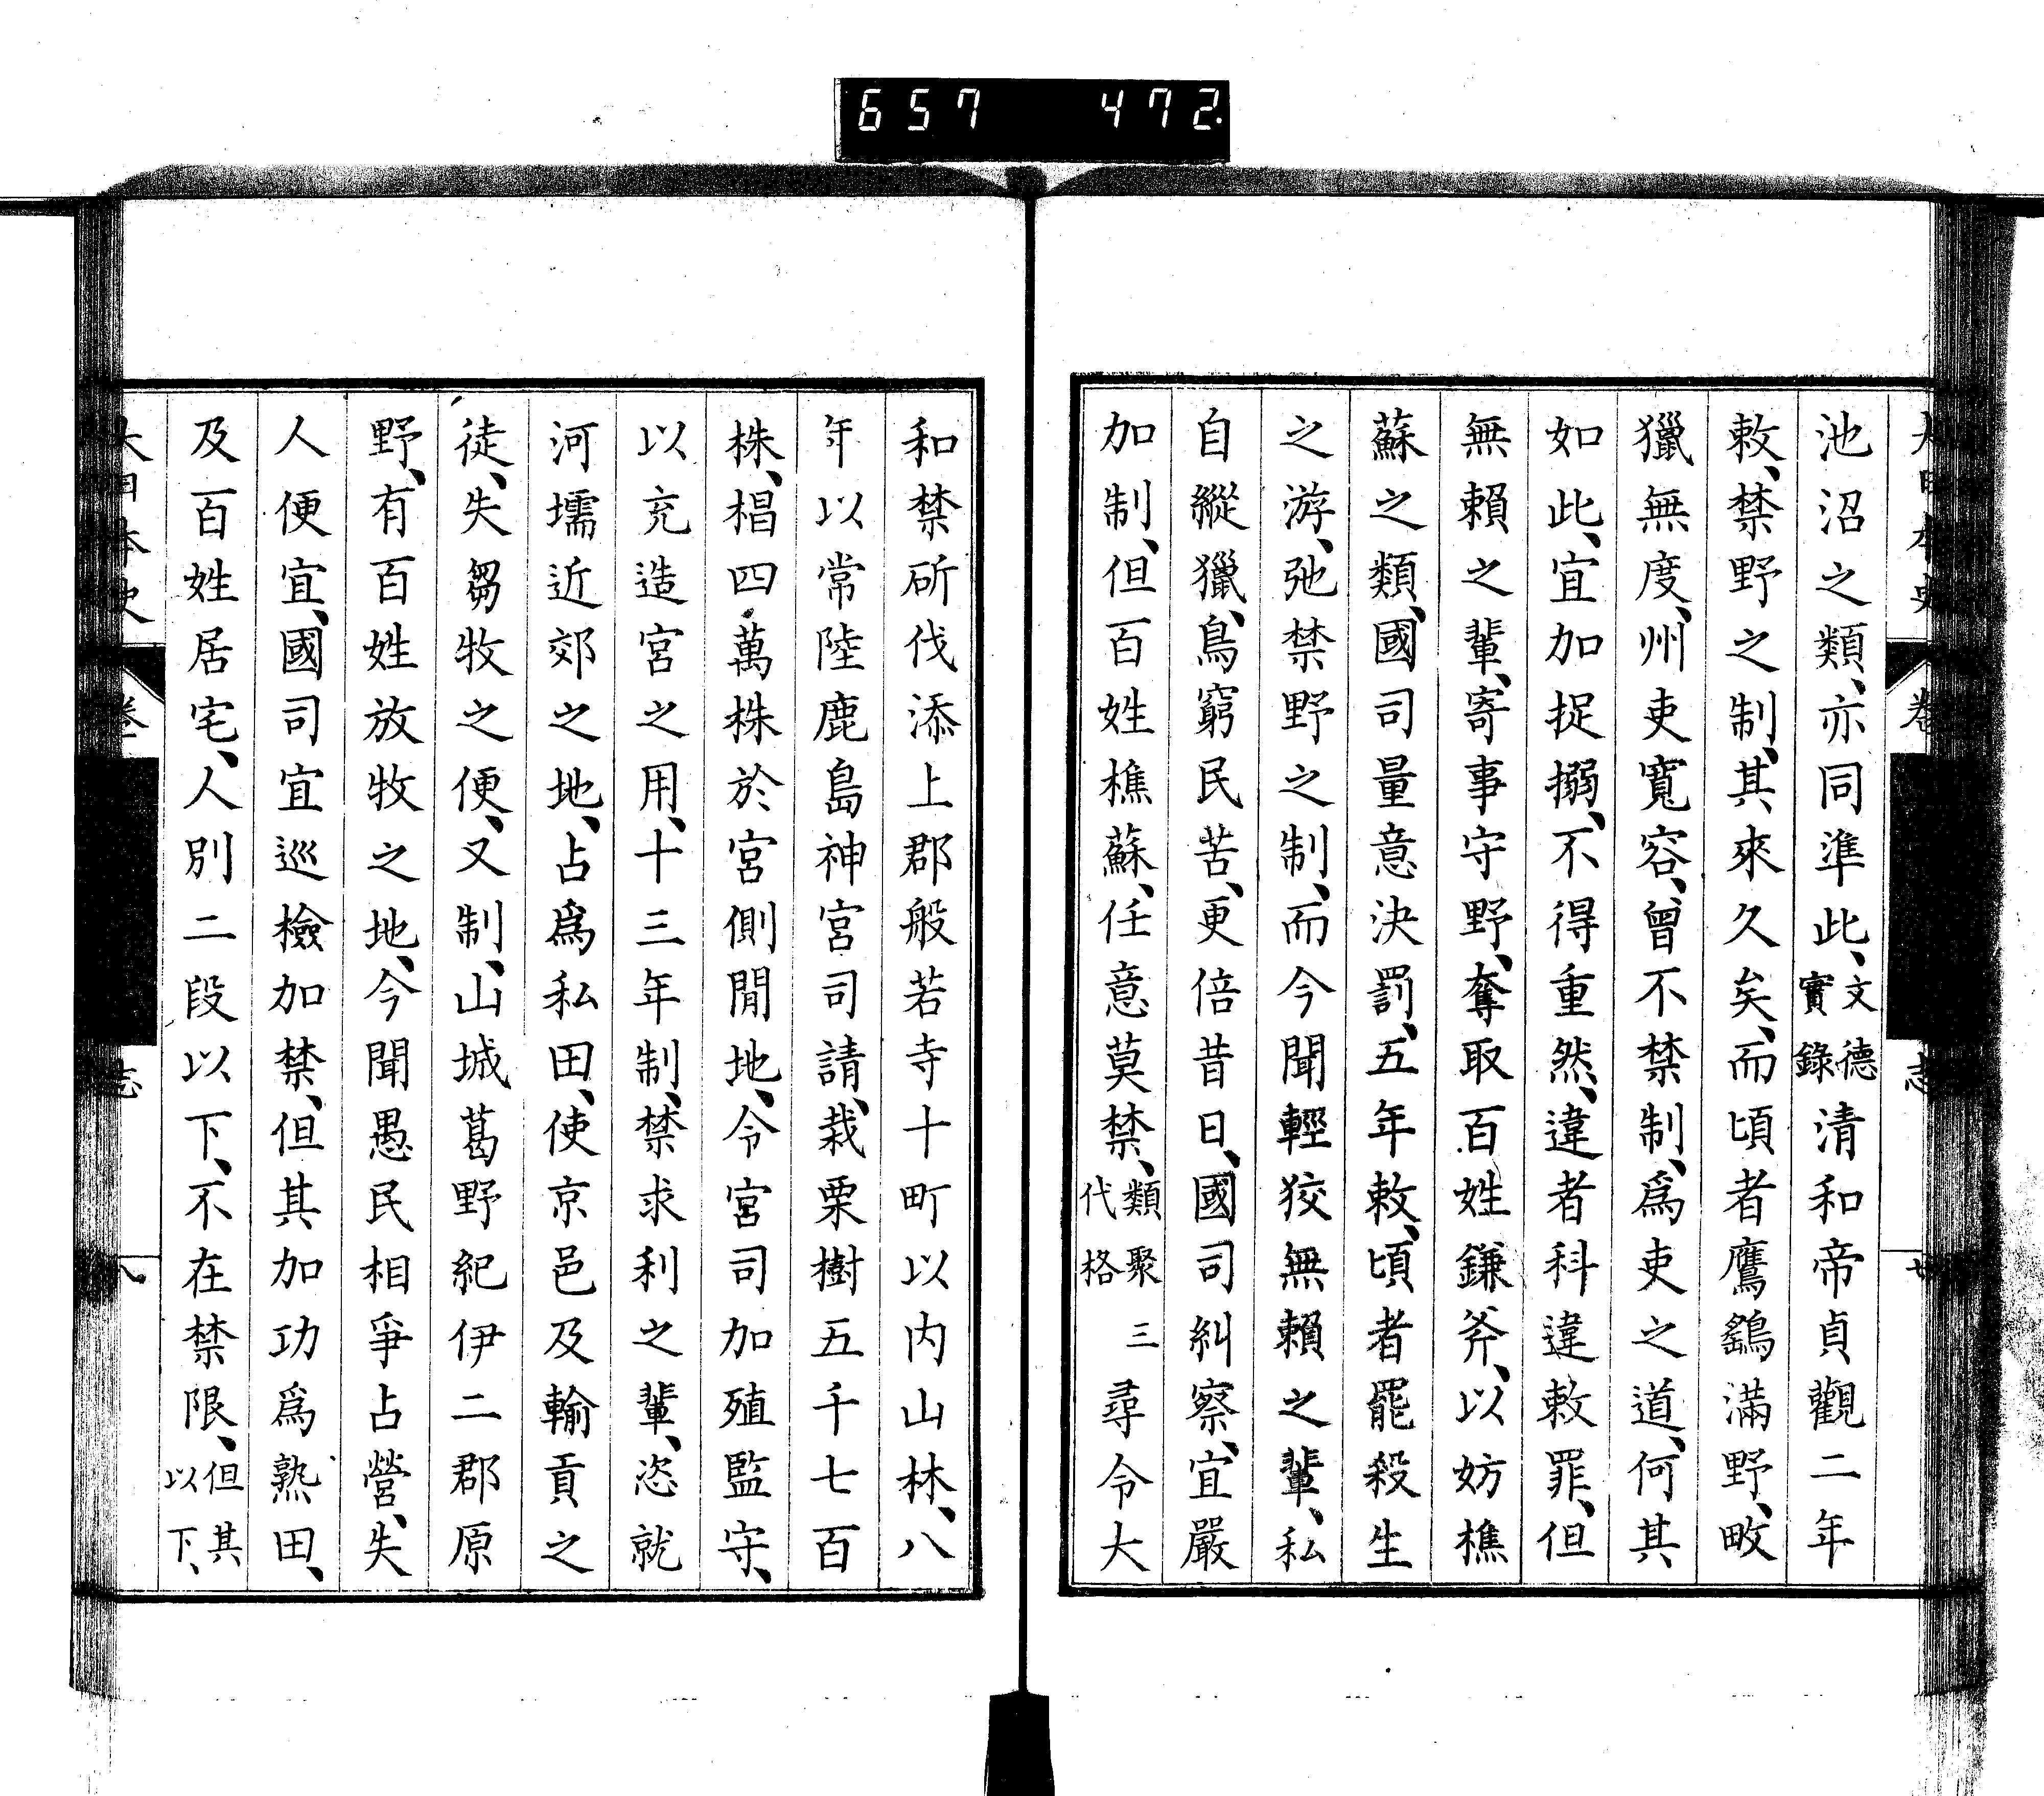 657 472
池沼之類、亦同準此、文德實錄清和帝貞觀二年
敕、禁野之制、其來久矣、而頃者鷹鷂滿野、畋
獵無度、州吏寬容、曾不禁制、爲吏之道、何其
如此、宜加捉搦、不得重然、違者科違敕罪、但
無賴之輩、寄事守野、奪取百姓鎌斧、以妨樵
蘇之類、國司量意決罰、五年敕、頃者罷殺生
之游、弛禁野之制、而今聞輕狡無賴之輩、私
自縱獵、鳥窮民苦、更倍昔日、國司糾察、宜嚴
加制、但百姓樵蘇、任意莫禁、類聚三代格尋令大
和禁斫伐添上郡般若寺十町以內山林、八
年以常陸鹿島神宮司請、栽栗樹五千七百
株、椙四萬株於宮側閒地、令宮司加殖監守、
以充造宮之用、十三年制、禁求利之輩、恣就
河壖近郊之地、占爲私田、使京邑及輸貢之
徒、失芻牧之便、又制、山城葛野紀伊二郡原
野、有百姓放牧之地、今聞愚民相爭占營、失
人便宜、國司宜巡檢加禁、但其加功爲熟田、
及百姓居宅、人別二段以下、不在禁限、但其以下、
大日本史 卷 志 八